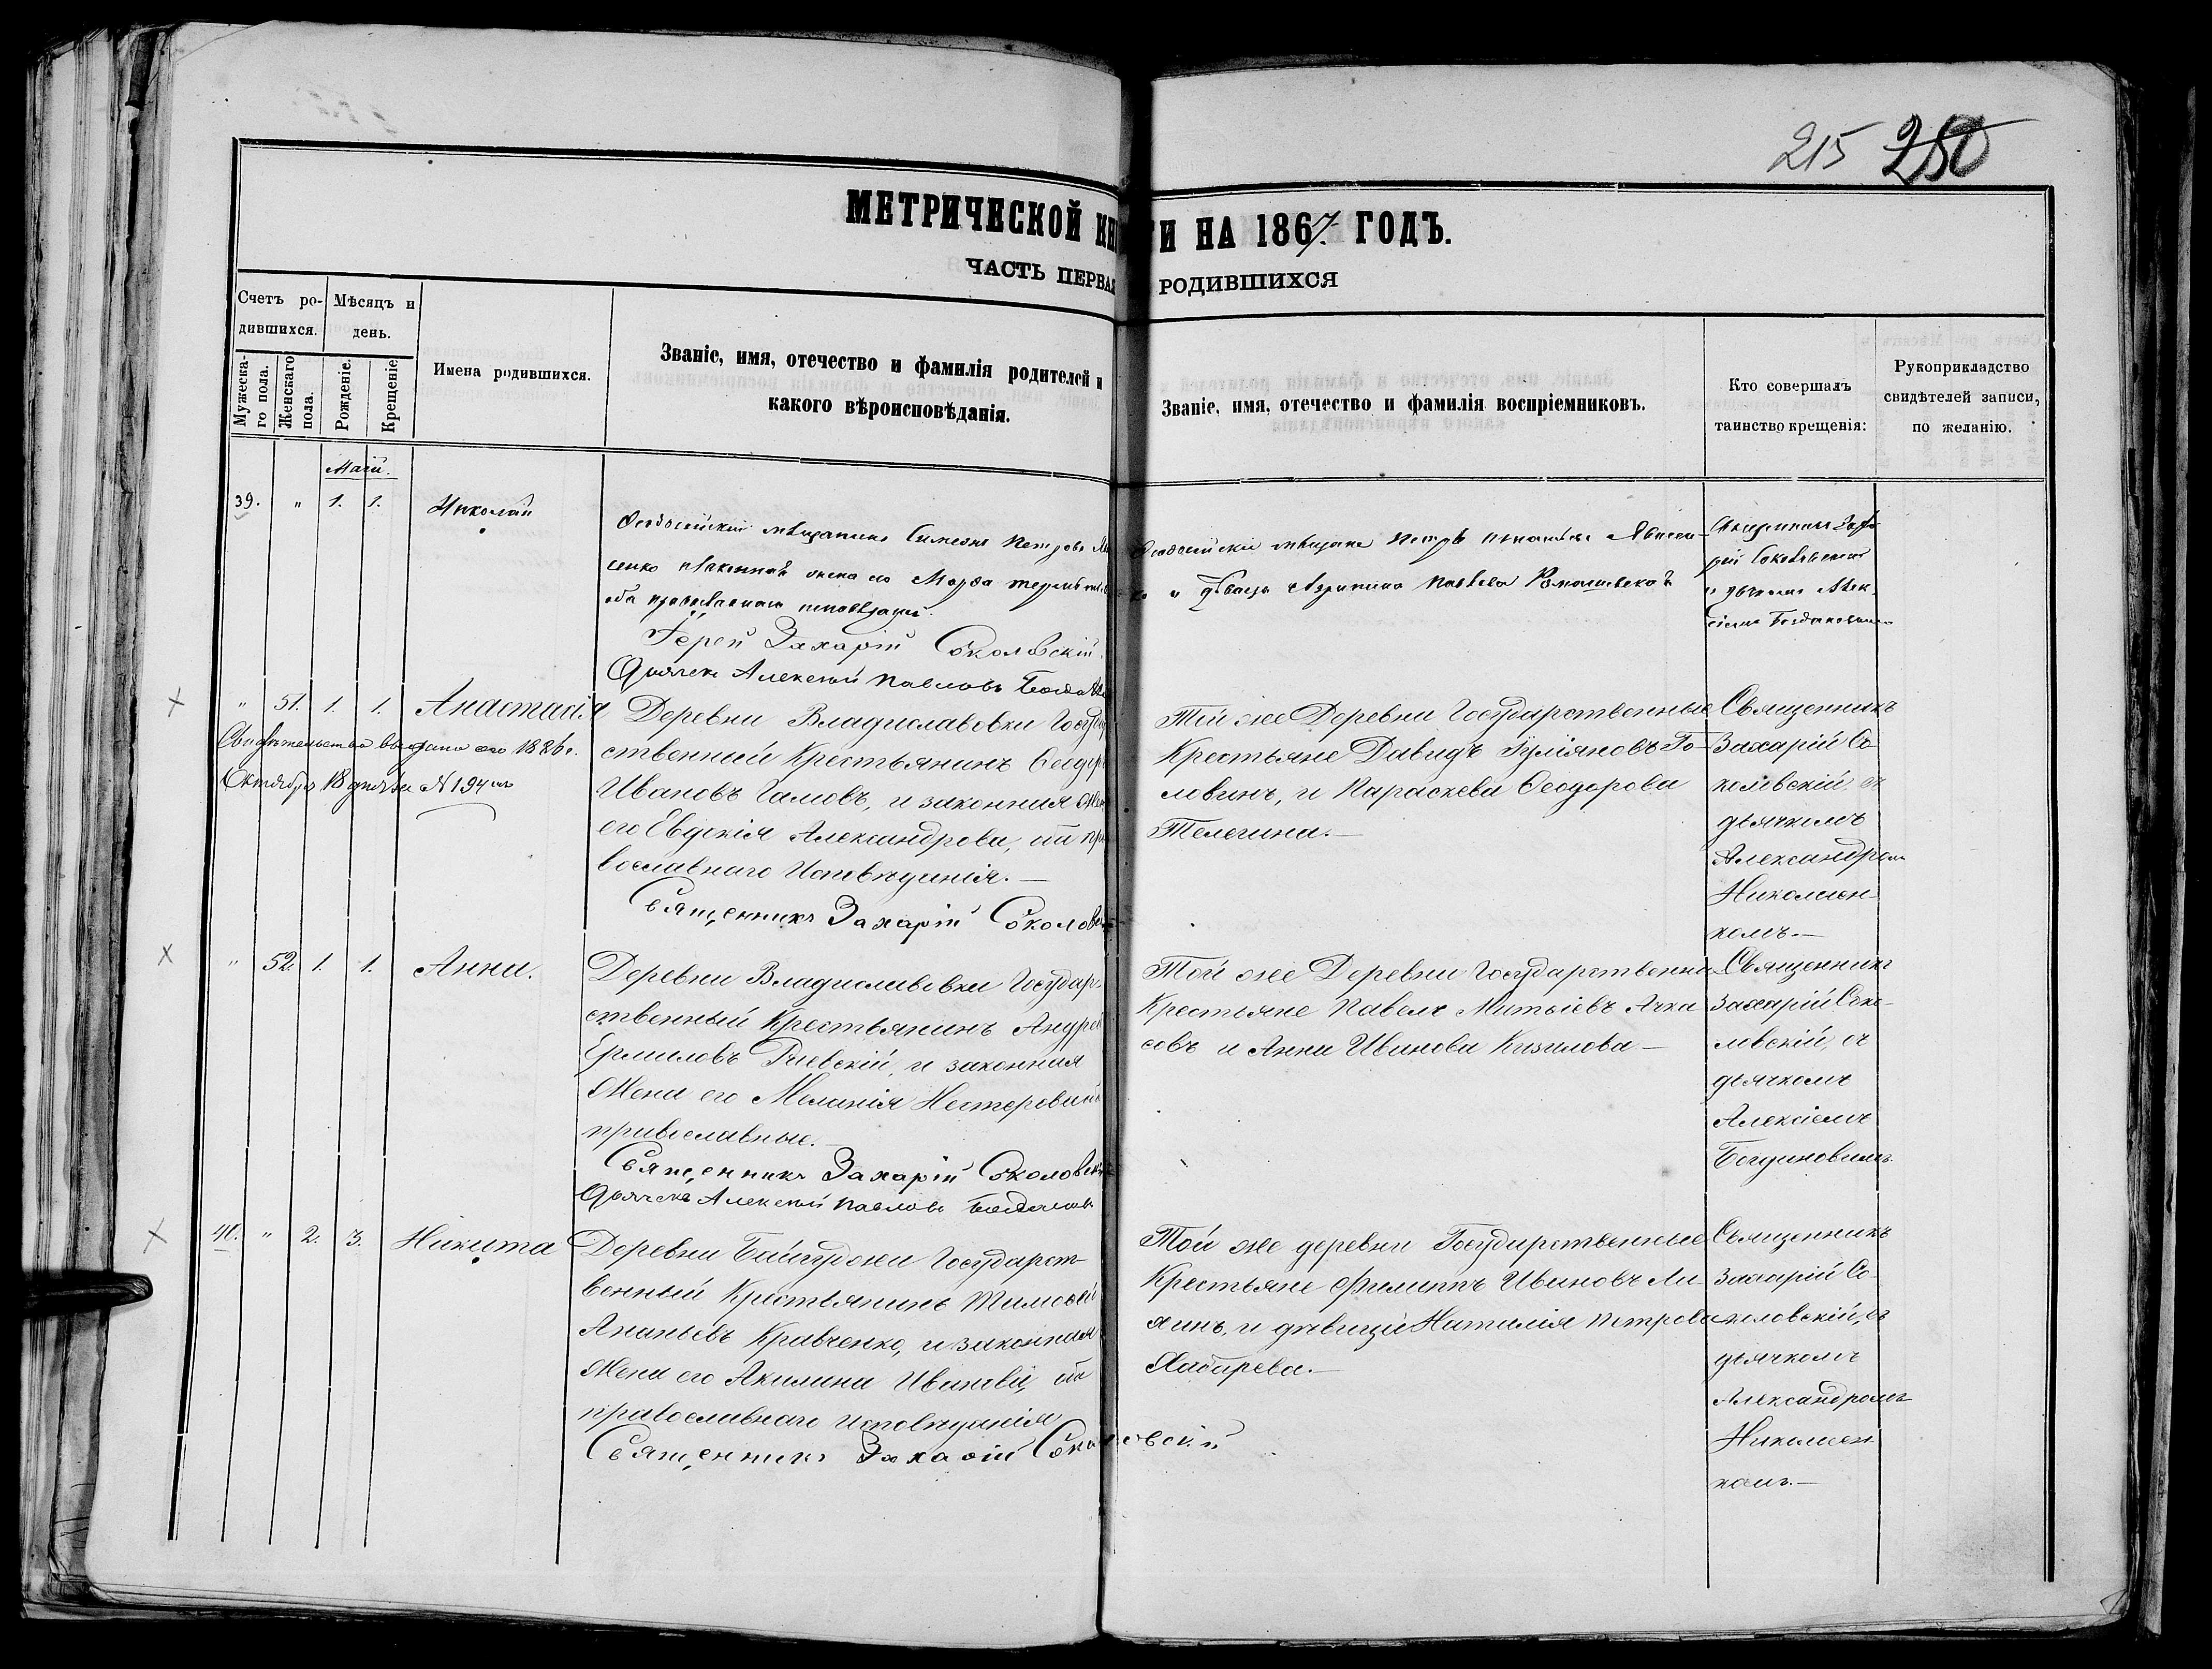 215 250
МЕТРИЧЕСКОЙ КНИГИ НА 1867. ГОДЪ.
ЧАСТЬ ПЕРВАЯ РОДИВШИХСЯ
Счетъ ро-
дившихся.
Мѣсяцъ и
день.
Мужеска-
го пола.
Женскаго
пола.
Рожденіе.
Крещеніе
Имена родившихся.
Званіе, имя, отечество и фамилія родителей и
какого вѣроисповѣданія.
Званіе, имя, отечество и фамилія воспріемниковъ.
Кто совершалъ
таинство крещенія:
Рукоприкладство
свидѣтелей записи,
по желанію.
Май.
39. " 1. 1. Николай
Ѳеодосійскій мѣщанинъ Симеонъ Петровъ
сенко законная жена его Марѳа
оба православнаго исповѣданія.
Іерей Захарій Соколовскій.
Дьячекъ Алексѣй Павловъ
Ѳеодосійскіе мѣщане Петръ
и дѣвица Павлова
Священникъ Заха-
рій Соколовскій
съ дьячкомъ Алек-
сѣемъ Богдановымъ
" 51. 1. 1. Анастасія
Свидѣтельство выдано 1886 г.
Октября 18 дня за № 194 мъ
Деревни Владиславовки Государ
ственный Крестьянинъ Ѳеодоръ
Ивановъ Гамовъ, и законная жена
его Евдокія Александрова, оба пра
вославнаго Исповѣданія.—
Священникъ Захарій Соколовс
Той же Деревни Государственные
Крестьяне Давидъ Го-
ловинъ, и Параскева Ѳеодорова
Телегина.—
Священникъ
Захарій Со-
коловскій, съ
дьячкомъ
Александромъ
Николаен-
комъ.—
" 52. 1. 1. Анна.
Деревни Владиславовки Государ-
ственный Крестьянинъ Андрей
Ермиловъ Ржевскій, и законная
Жена его Меланія Нестерова
православные.
Священникъ Захарій Соколовскій
Дьячекъ Алексѣй Павловъ Богдановъ
Той же Деревни Государственные
Крестьяне Павелъ Матвіевъ Ачка
совъ и Анна Иванова Кизилова—
Священникъ
Захарій Соко-
ловскій, съ
дьячкомъ
Алексіемъ
Богдановымъ.
40. " 2. 3. Никита
Деревни Байгуджи Государст-
венный Крестьянинъ Тимоѳей
Ананьевъ Кривченко, и законная
Жена его Акилина Иванова, оба
православнаго исповѣданія
Священникъ Захарій Соколовскій
Той же деревни Государственные
Крестьяне Филиппъ Ивановъ Ля-
хинъ, и дѣвица Наталія Петрова
Хабарева.—
Священникъ
Захарій Со-
коловскій, съ
дьячкомъ
Александромъ
Николаен-
комъ.—